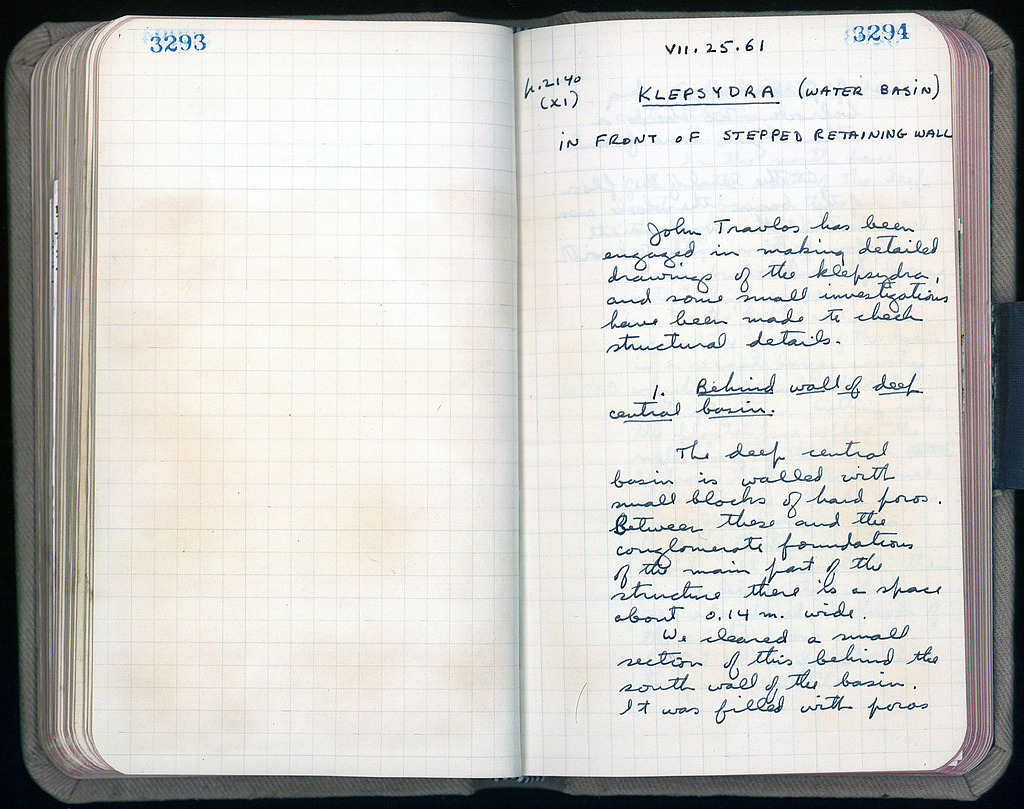 3293
3294
VII.25.61
h.2140
(XI)
KLEPSYDRA (WATER BASIN)
IN FRONT OF STEPPED RETAINING WALL
John Travlos has been
engaged in making detailed
drawings of the klepsydra,
and some small investigations
have been made to check
structural details.
1. Behind wall of deep
central basin.
The deep central
basin is walled with
small blocks of hard poros.
Between these and the
conglomerate foundations
of the main part of the
structure there is a space
about 0.14 m. wide.
We cleared a small
section of this behind the
south wall of the basin.
It was filled with poros